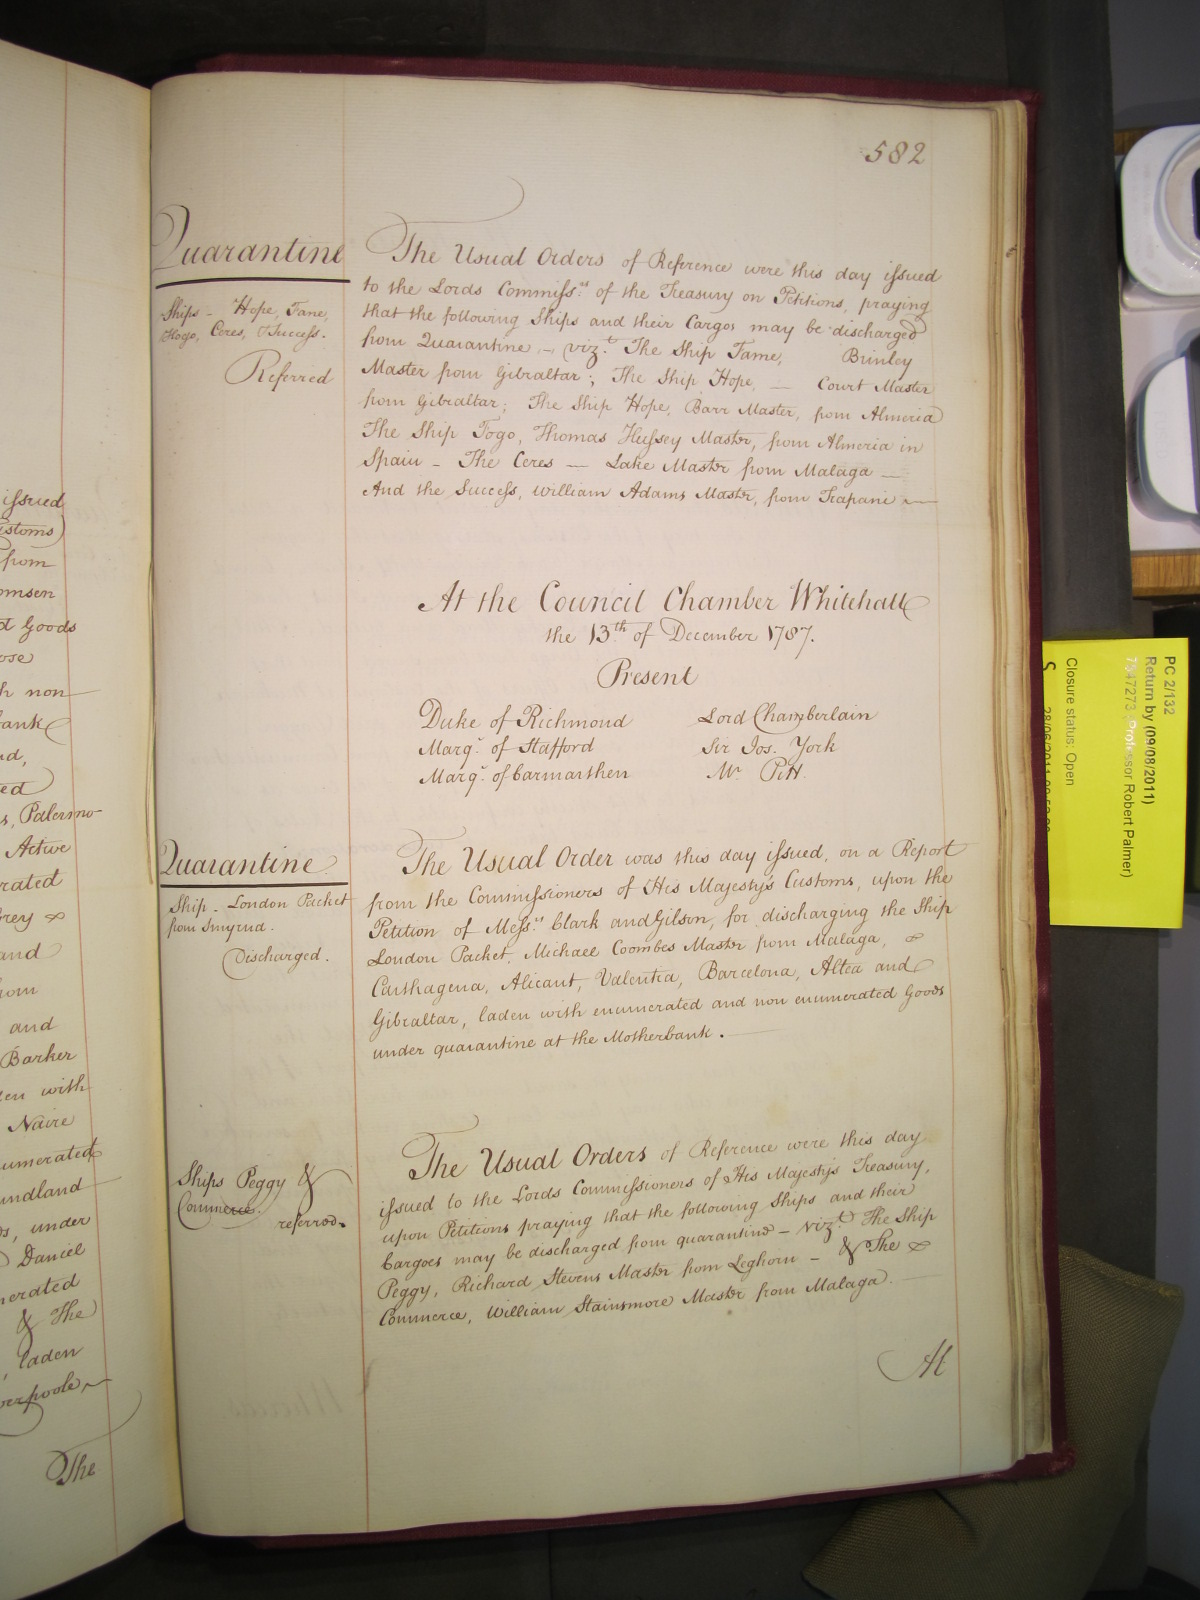 issued
ustoms)
from
omsen
d Goods
ose
h non
bank
nd,
ed
s, Palermo
Active
rated
rey &
and
rom
and
Barker
en with
Naire
umerated
undland
s, under
Daniel
merated
& The
, laden
verpoole,
The
582
Quarantine
Ships - Hope, Fame,
Hope, Ceres, Success.
Referred
The Usual Orders of Reference were this day issued
to the Lords Commiss.rs of the Treasury on Petitions, praying
that the following Ships and their Cargos may be discharged
from Quarantine - viz.t The Ship Fame, Brinley
Master from Gibraltar; The Ship Hope, — Court Master
from Gibraltar; The Ship Hope, Barr Master, from Almeria
The Ship Togo, Thomas Hussey Master, from Almeria in
Spain - The Ceres — Lake Master from Malaga —
And the Success, William Adams Master, from Trapani —
At the Council Chamber Whitehall
the 13.th of December 1787.
Present
Duke of Richmond Lord Chamberlain
Marq.s of Stafford Sir Jos. York
Marq.s of Carmarthen Mr. Pitt.
Quarantine
Ship - London Packet
from Smyrna.
Discharged.
The Usual Order was this day issued, on a Report
from the Commissioners of His Majesty's Customs, upon the
Petition of Mess.rs Clark and Gilson, for discharging the Ship
London Packet, Michael Coombes Master from Malaga, &
Carthagena, Alicant, Valentia, Barcelona, Altea and
Gibraltar, laden with enumerated and non enumerated Goods
under quarantine at the Motherbank.
Ships Peggy &
Commerce.
referred.
The Usual Orders of Reference were this day
issued to the Lords Commissioners of His Majesty's Treasury,
upon Petitions praying that the following Ships and their
Cargoes may be discharged from quarantine - viz.t The Ship
Peggy, Richard Stevens Master from Leghorn - & The
Commerce, William Stainsmore Master from Malaga.
At
PC 2/132
Return by (09/08/2011)
7547273 Professor Robert Palmer)
Closure status: Open
S